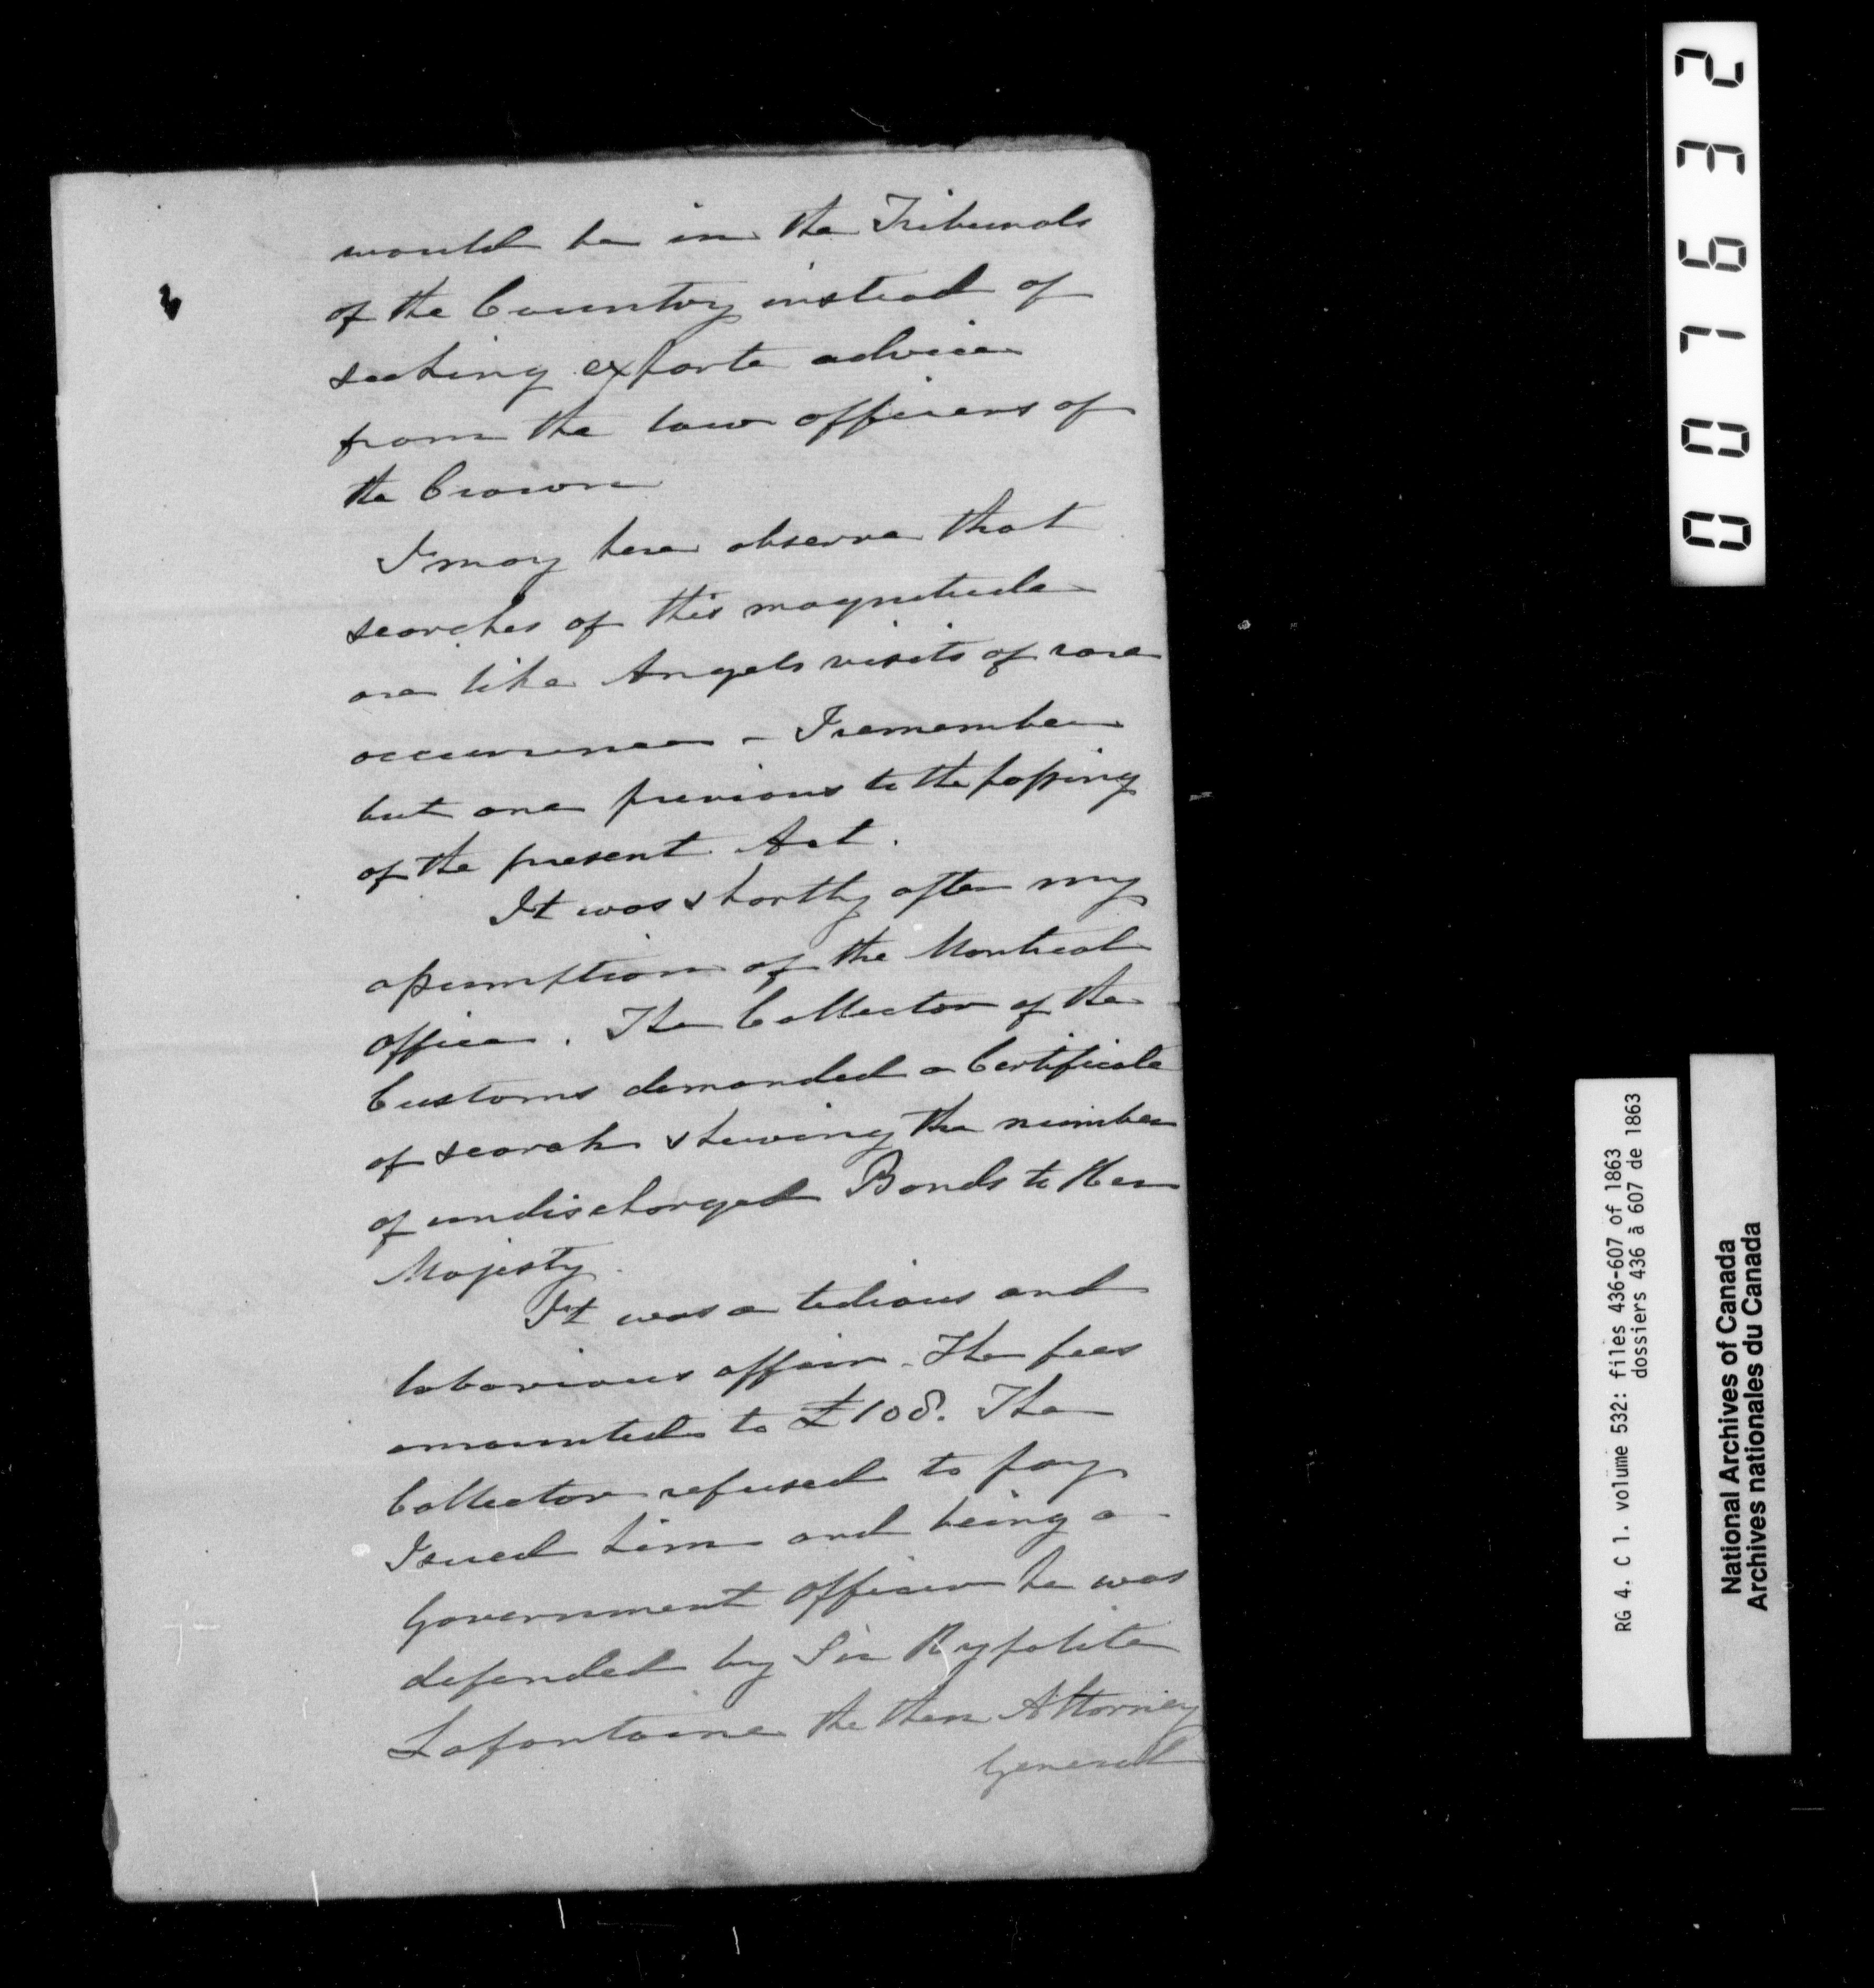 would be in the Tribunals
of the Country instead of
seeking exparte advice
from the law officers of
the Crown
I may here observe that
searches of this magnitude
are like Angels visits of rare
occurrence - I remember
but one previous to the passing
of the present Act.
It was shortly after my
assumption of the Montreal
office. The Collector of the
Customs demanded a Certificate
of search shewing the number
of undischarged Bonds to Her
Majesty.
It was a tedious and
laborious affair. The fees
amounted to £108. The
Collector refused to pay
I sued him and being a
Government officer he was
defended by Sir Hypolite
Lafontaine the then Attorney
General
007632
RG 4. C 1. volume 532: files 436-607 of 1863
dossiers 436 à 607 de 1863
National Archives of Canada
Archives nationales du Canada